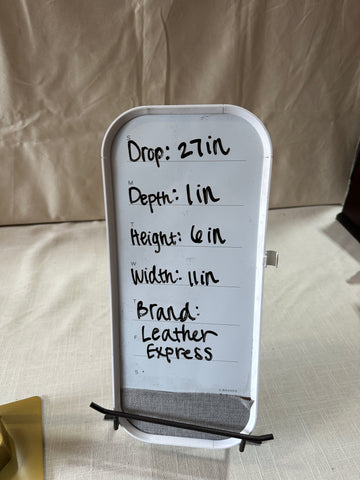 S
Drop: 27in
M
Depth: 1in
T
Height: 6in
W
Width: 11in
T
Brand:
F
Leather
Express
S